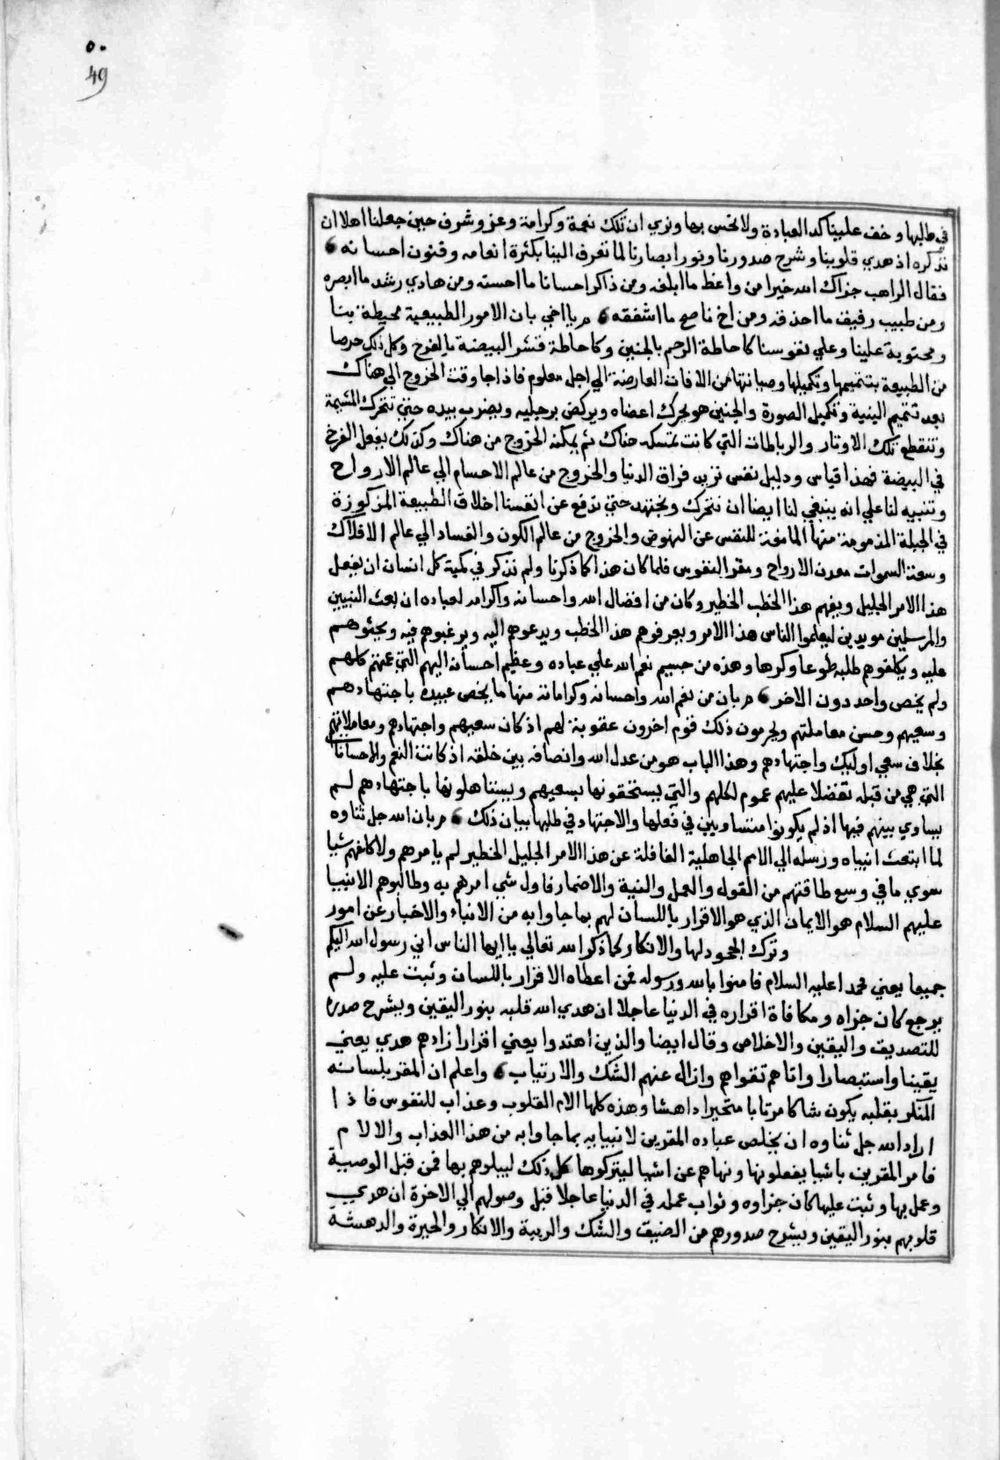 ٥٠
49
في طلبها وخف علينا كد العبادة ولا نحس بها ونري ان تلك نعمة وكرامة وعز وشرف حين جعلنا اهلا ان
نذكره اذ هدي قلوبنا وشرح صدورنا ونور ابصارنا لما تعرف الينا بكثرة انعامه وفنون احسانه
فقال الراهب جزاك الله خيرا من واعظ ما ابلغه ومن ذاكر احسانا ما احسنه ومن هادي رشد ما ابصره
ومن طبيب رفيق ما احذقه ومن اخ ناصح ما اشفقه ثم يا اخي بان الامور الطبيعية محيطة بنا
ومحتوية علينا وعلي نفوسنا كاحاطة الرحم بالجنين وكاحاطة قشر البيضة بالفرخ وكل ذلك حرصا
من الطبيعة بتتميمها وتكميلها وصيانتها من الافات العارضة الي اجل معلوم فاذا جا وقت الخروج الي هناك
بعد تتميم البنية وتكميل الصورة والجنين هو يحرك اعضاه ويركض برجليه ويضرب بيده حتي تتحرك المشيمة
وتنقطع تلك الاوتار والرباطات التي كانت تمسكه هناك ثم يمكنه الخروج من هناك وكذلك يفعل الفرخ
في البيضة فهذا قياس ودليل نفس تريد فراق الدنيا والخروج من عالم الاجسام الي عالم الارواح
وتنبيه لنا علي انه ينبغي لنا ايضا ان نتحرك ونجتهد حتي ندفع عن انفسنا اخلاق الطبيعة المركوزة
في الجبلة المذمومة منها المانعة للنفس عن النهوض والخروج من عالم الكون والفساد الي عالم الافلاك
وسعة السموات معدن الارواح ومقر النفوس فلما كان هذا كما ذكرنا ولم نذكر في كمية كل انسان ان يفعل
هذا الامر الجليل ويفهم هذا الخطب الخطير وكان من افضال الله واحسانه واكرامه لعباده ان بعث النبيين
والمرسلين مويدين ليعلموا الناس هذا الامر ويعرفوهم هذا الخطب ويدعوهم اليه ويرغبوهم فيه ويحثوهم
عليه ويكلفوهم طلبه طوعا وكرها وهذه من جسيم نعم الله علي عباده وعظيم احسانه اليهم التي عمتهم كلهم
ولم يخص واحد دون الاخر ثم بان من نعم الله واحسانه وكراماته منها ما يخص عبيده باجتهادهم
وسعيهم وحسن معاملتهم ويحرمون ذلك قوم اخرون عقوبة لهم اذ كان سعيهم واجتهادهم ومعاملاتهم
بخلاف سعي اوليك واجتهادهم وهذا الباب هو من عدل الله وانصافه بين خلقه اذ كانت النعم والاحسانات
التي هي من قبله تفضلا عليهم عموم لكلهم والتي يستحقونها بسعيهم ويستاهلونها باجتهادهم لم
يساوي بينهم فيها اذ لم يكونوا متساويين في فعلها والاجتهاد في طلبها بيان ذلك ثم بان الله جل ثناوه
لما ابتعث انبياه ورسله الي الامم الجاهلية الغافلة عن هذا الامر الجليل الخطير لم يامرهم ولا كلفهم شيا
سوي ما في وسع طاقتهم من القول والعمل والنية والاضمار فاول شي امرهم به وطالبوهم الانبيا
عليهم السلام هو الايمان الذي هو الاقرار باللسان لهم بما جاوا به من الانباء والاخبار عن امور
وترك الجحود لها والانكار كما ذكر الله تعالي يا ايها الناس اني رسول الله اليكم
جميعا يعني محمدا عليه السلام فامنوا بالله ورسوله فمن اعطاه الاقرار باللسان وثبت عليه ولم
يرجع كان جزاه ومكافاة اقراره في الدنيا عاجلا ان هدي الله قلبه بنور اليقين ويشرح صدره
للتصديق واليقين والاخلاص وقال ايضا والذين اهتدوا يعني اقرارا زادهم هدي يعني
يقينا واستبصارا واتاهم تقواهم وازال عنهم الشك والارتياب واعلم ان المقر بلسانه
المنكر بقلبه يكون شاكا مرتابا متحيرا داهشا وهذه كلها الام القلوب وعذاب للنفوس فاذا
اراد الله جل ثناوه ان يخلص عباده المقرين لانبيايه بما جاوا به من هذا العذاب والالام
فامر المقرين باشيا يفعلونها ونهاهم عن اشيا ليتركوها كل ذلك ليبلوهم بها فمن قبل الوصية
وعمل بها وثبت عليها كان جزاوه وثواب عمله في الدنيا عاجلا قبل وصولهم الي الاخرة ان هدي
قلوبهم بنور اليقين ويشرح صدورهم من الضيق والشك والريبة والانكار والحيرة والدهشة